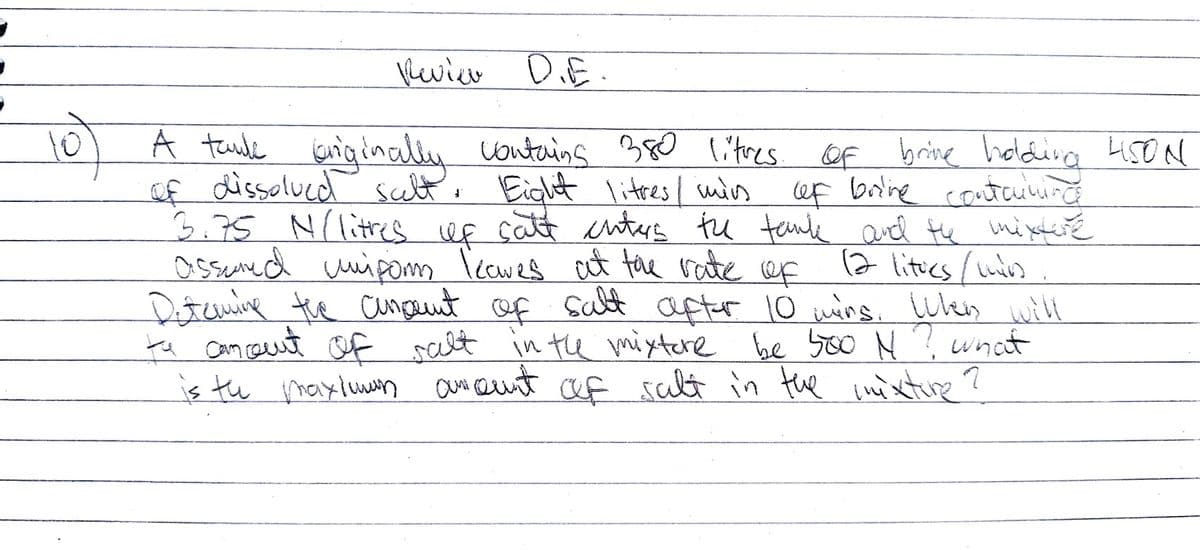 Review D.E.
10) A tank originally contains 380 litres of brine holding 450 N
of dissolved salt. Eight litres/mins of brine containing
3.75 N/litres of salt enters the tank and the mixture
assumed uniform leaves at the rate of 12 litres/min.
Determine the amount of salt after 10 mins. When will
the amount of salt in the mixture be 500 N? what
is the maximum amount of salt in the mixture?